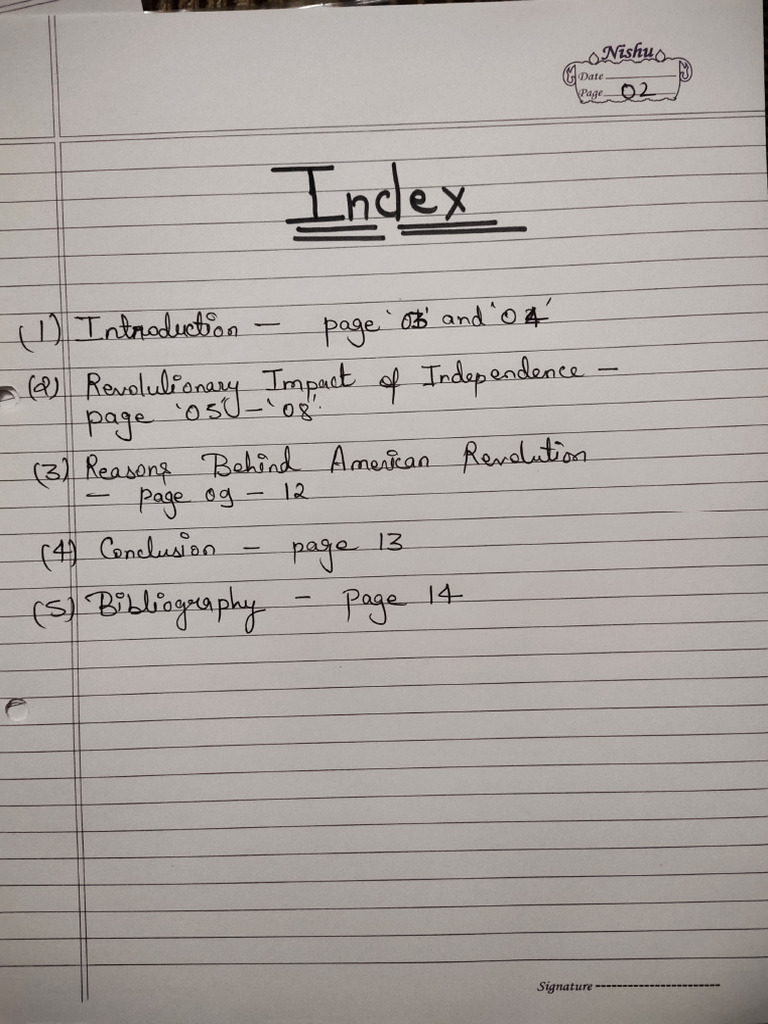 Nishu
Date
Page 02
Index
(1) Introduction — page '03' and '04'
(2) Revolutionary Impact of Independence —
page '05' - '08'.
(3) Reasons Behind American Revolution
— page 09 - 12
(4) Conclusion — page 13
(5) Bibliography - Page 14
Signature